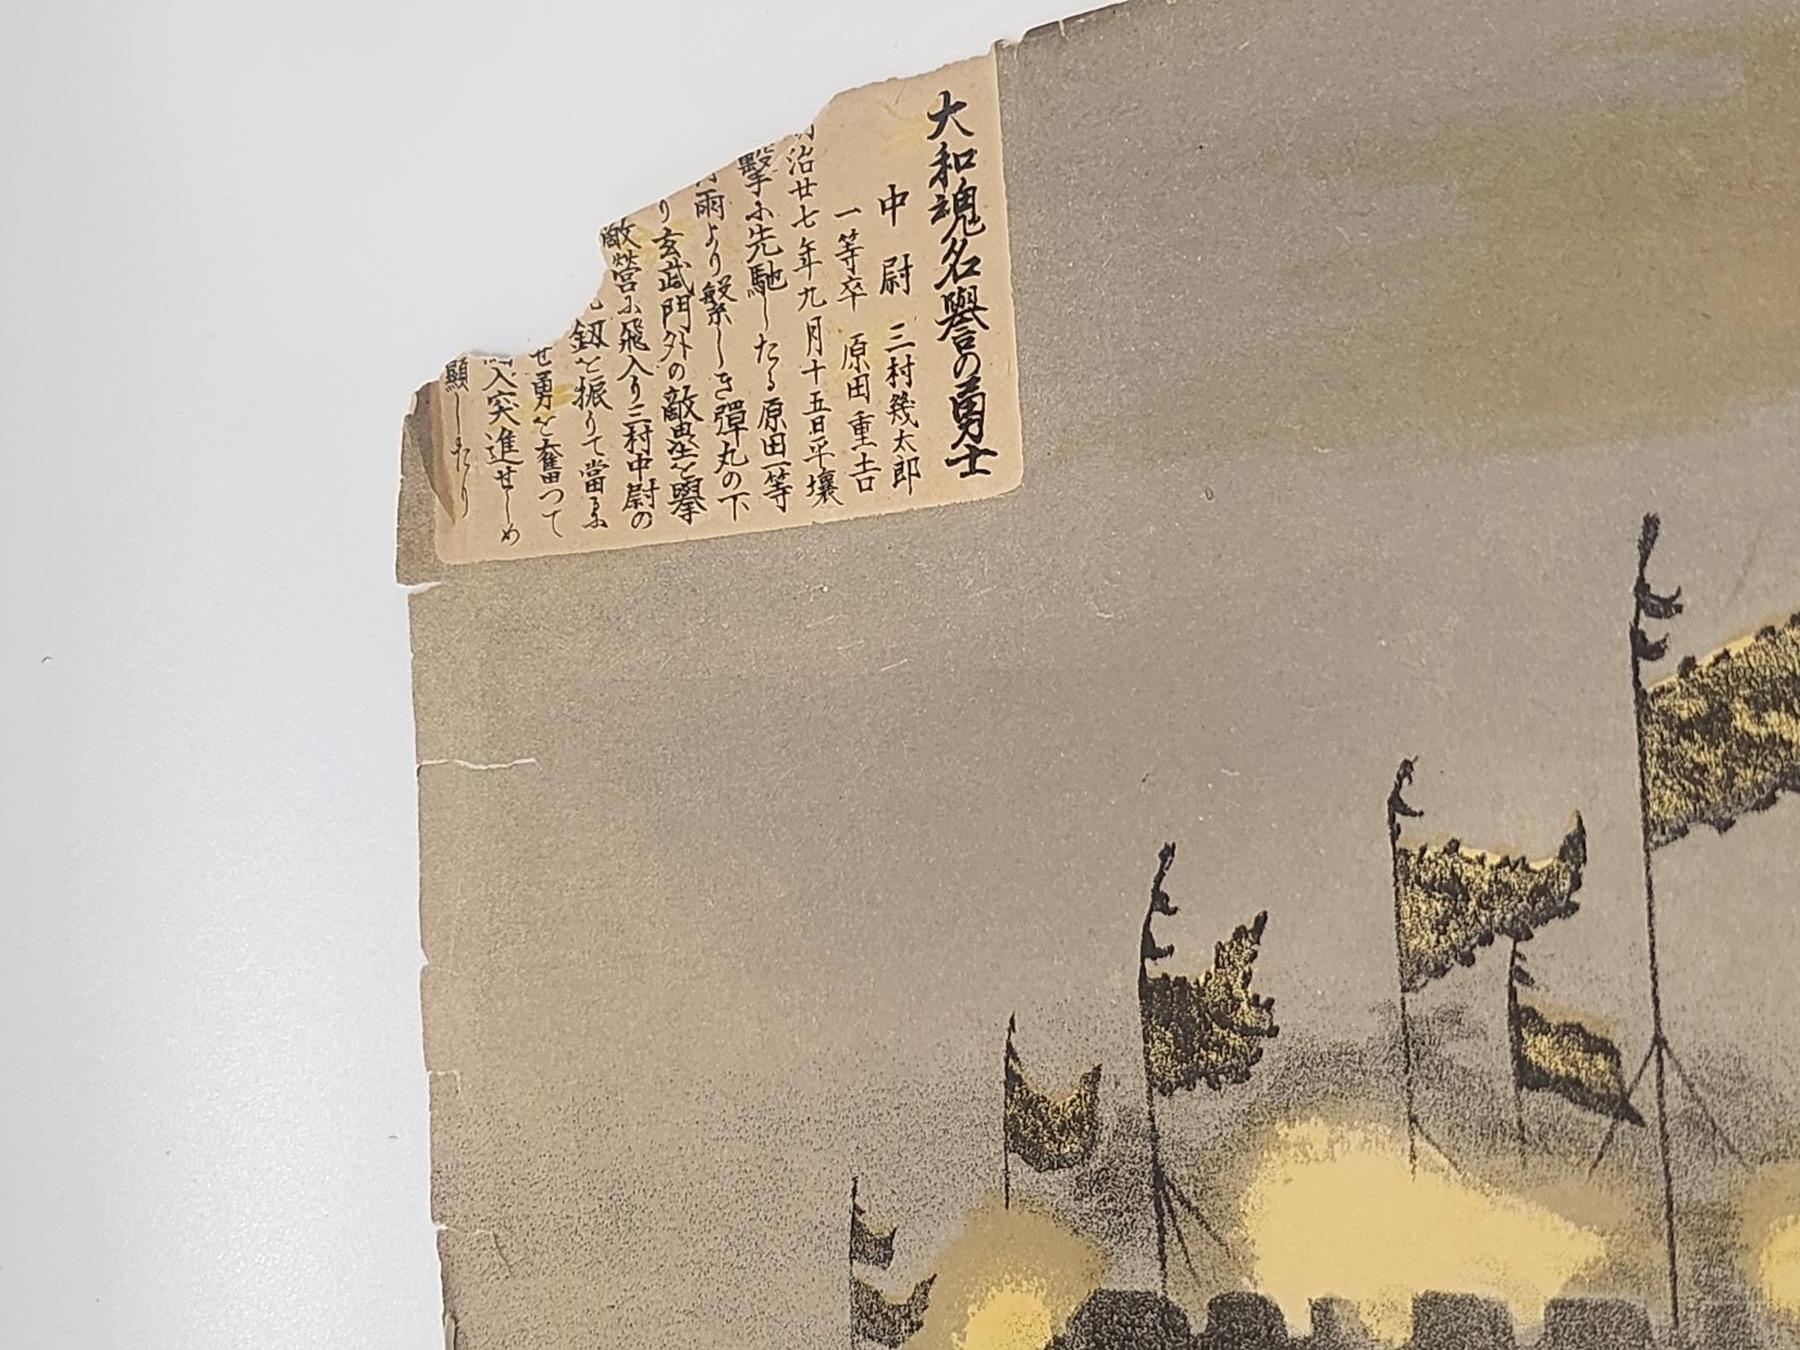 大和魂名譽の勇士
中尉 三村幾太郎
一等卒 原田重吉
治廿七年九月十五日平壤
擊に先馳したる原田一等
雨より繁しき彈丸の下
り玄武門外の敵壘を擧
敵營に飛入り三村中尉の
釼を振りて當るに
せ勇を奮つて
入突進せしめ
顯したり